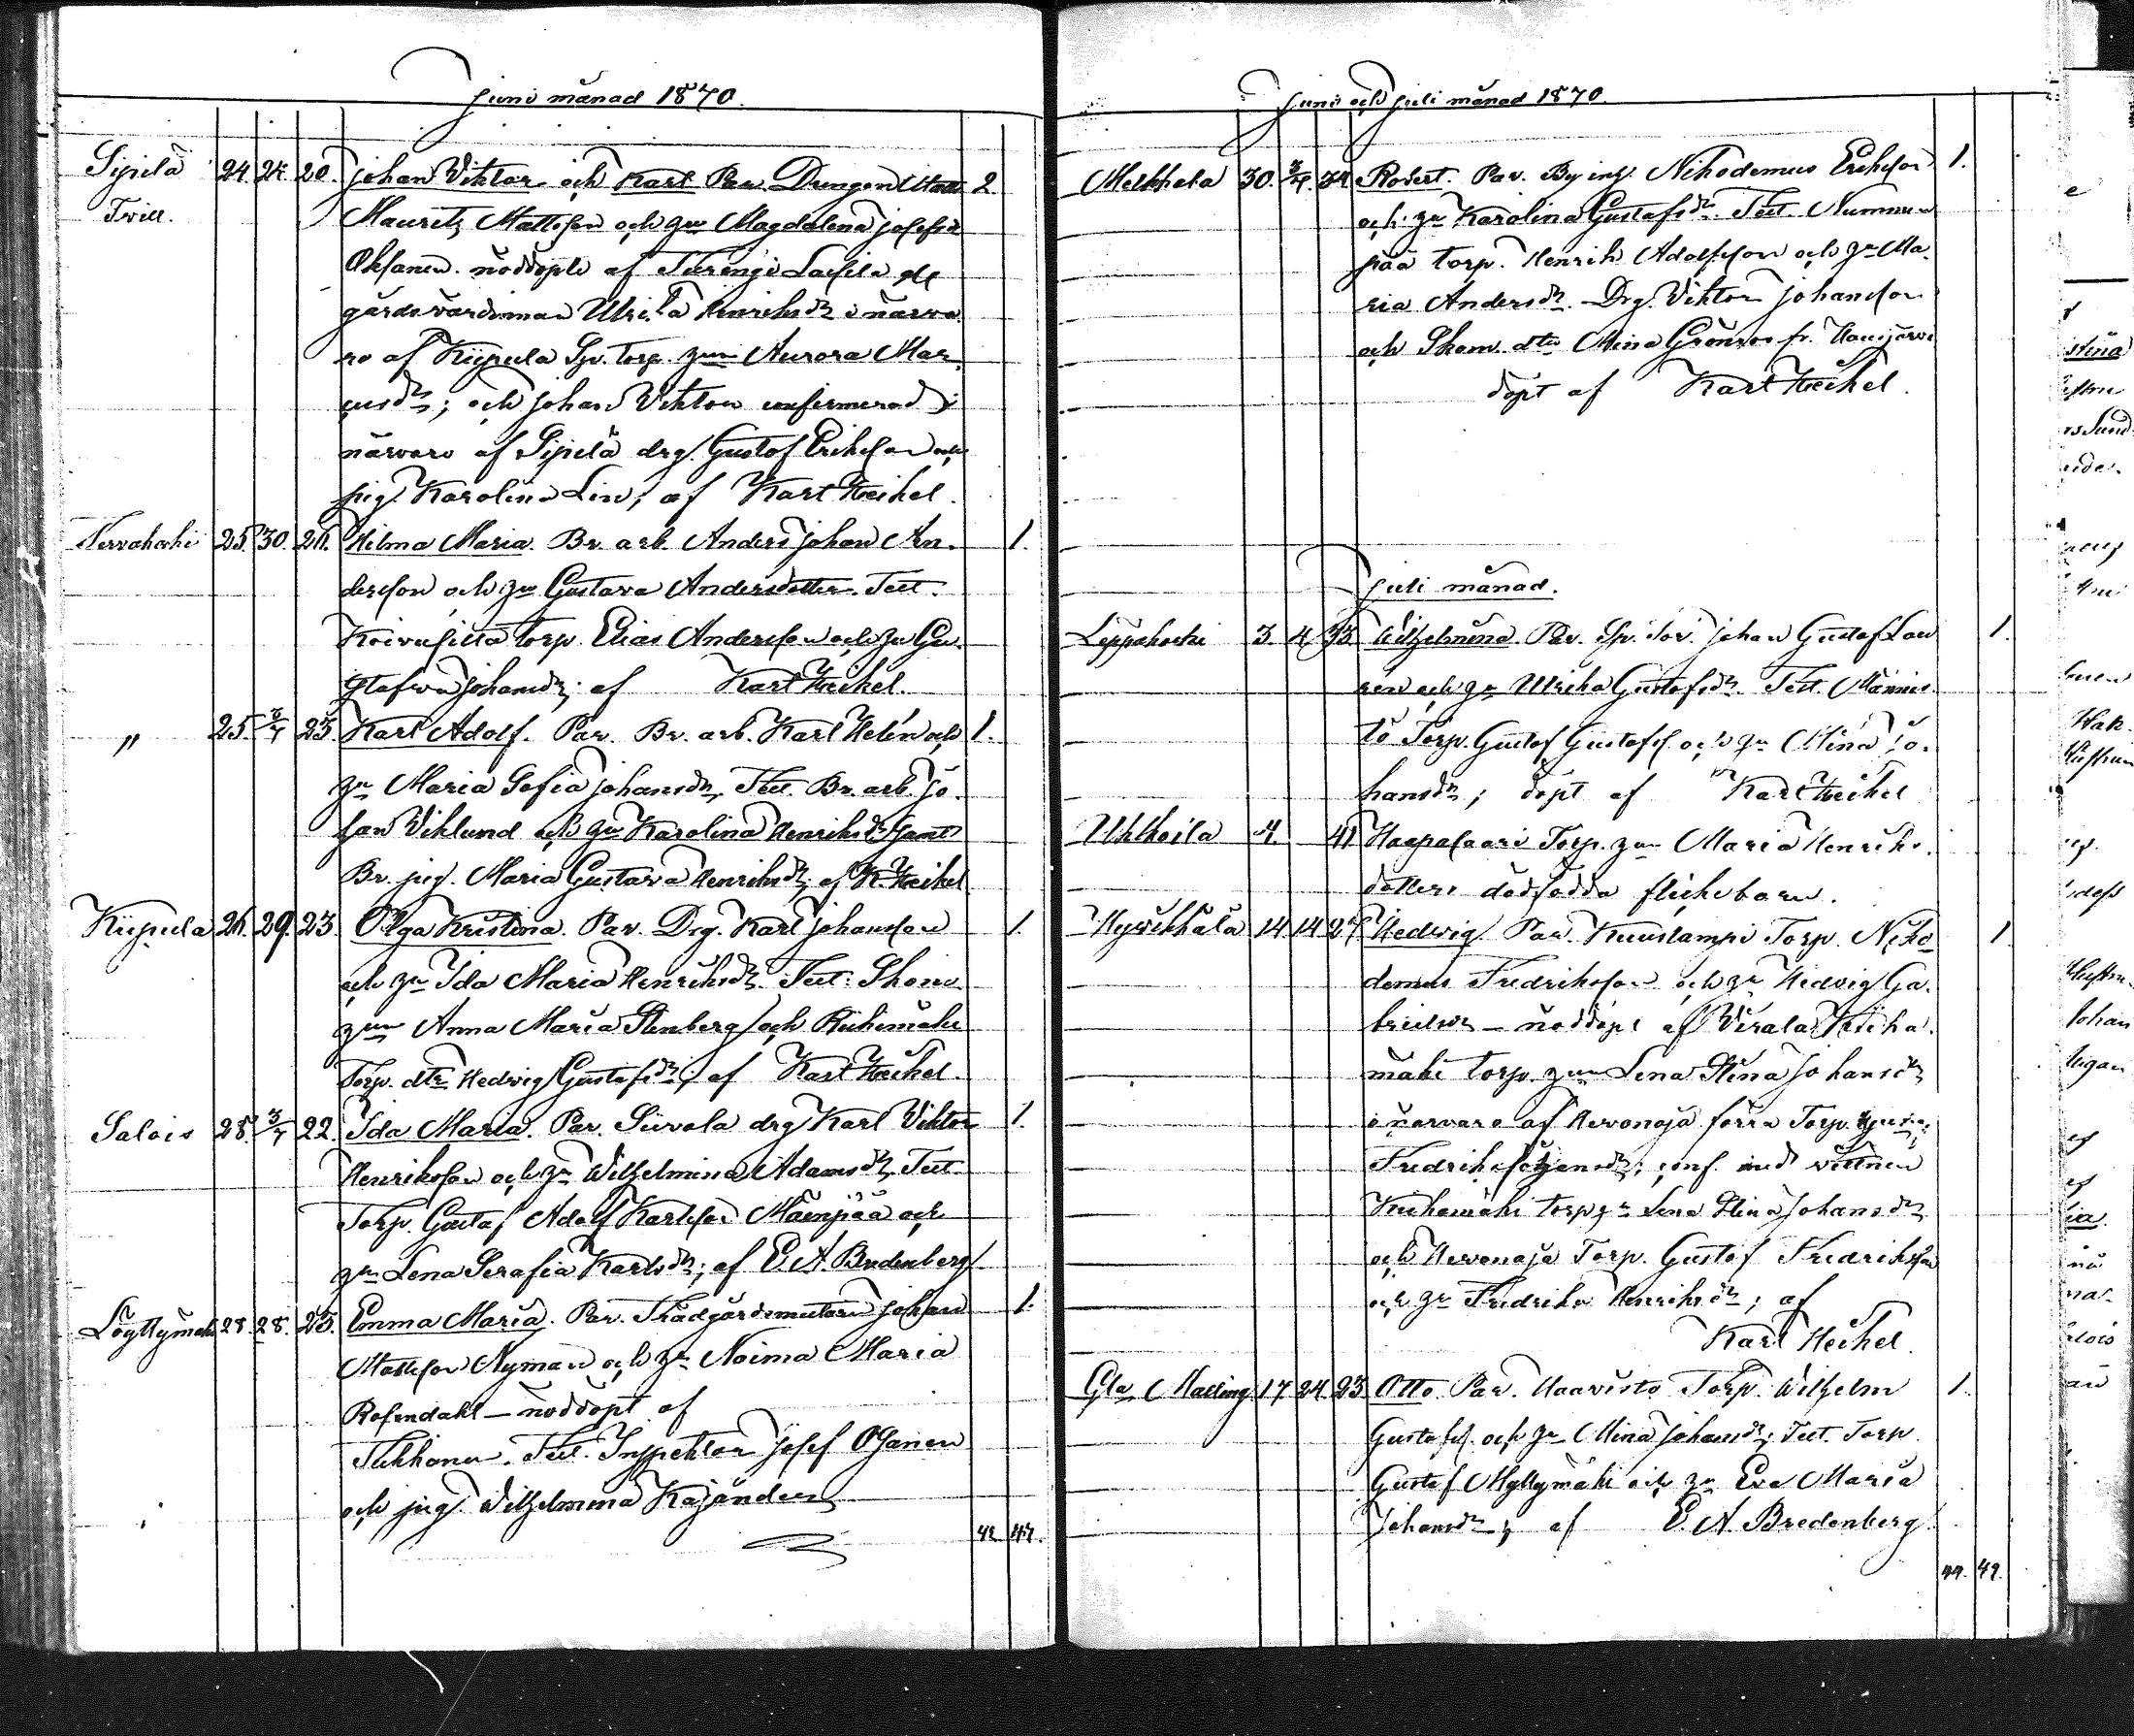 Juni månad 1870.
Sipilä 24. 24. 20. Johan Viktor och Karl Par. Drengen Matts 2.
Twill.
Mauritz Mattsson och hu Magdalena Josefsdr
Oksanen. nöddöpte af Turengi Laesila
gårds värdinnan Ulrika Henriksdr i närva-
ro af Kiipula Sp. torp. hu Aurora Mar-
cusdr; och Johan Viktor confirmerad i
närvaro af Sipilä drg. Gustof Erikson och
pig. Karolina Lin; af Karl Heikel.
Tervakoski 25. 30. 24. Hilma Maria. Br. arb. Anders Johan An- 1.
dersson och hu Gustava Andersdotter. Test.
Koivusilla torp. Elias Andersson och hu Gu-
stafva Johansdr; af Karl Heikel.
" 25. 3/7 23. Karl Adolf. Par. Br. arb. Karl Helén och 1.
hu Maria Sofia Johansdr. Test. Br. arb. Jo-
han Viklund och hu Karolina Henriksdr samt
Br. pig. Maria Gustava Henriksdr; af K. Heikel
Kiipula 26. 29. 23. Olga Kristina. Par. Drg. Karl Johansson 1.
och hu Ida Maria Henriksdr. Test: Skom.
hu Anna Maria Stenberg och Riihimäki
Torp. dtr Hedvig Gustafsdr; af Karl Heikel.
Salois 28. 3/7 22. Ida Maria. Par. Siivola drg Karl Viktor 1.
Henriksson och hu Wilhelmina Adamsdr. Test.
Torp. Gustaf Adolf Karlsson Mäenpää och
hu Lena Serafia Karlsdr; af E. A. Bredenberg.
Löyttymäki 28. 28. 25. Emma Maria. Par. Trädgårdsmästaren Johan 1.
Mattsson Nyman och hu Naima Maria
Rosendahl – nöddöpt af
Tikkanen. Test. Inspektor Josef Ojanen
och pig. Wilhelmina Kajander
42 47.
Juni och Juli månad 1870.
Merkkola 30. 3/7 34 Robert. Par. By inh. Nikodemus Eriksson 1.
och hu Karolina Gustafsdr. Test. Nummen
pää torp. Henrik Adolfsson och hu Ma-
ria Andersdr. Drg. Viktor Johansson
och Skom. dtr Mina Grönroos fr. Hausjärvi
döpt af Karl Heikel.
Juli månad.
Leppäkoski 3. 4. 33. Wilhelmina. Par. Sp. tor. Johan Gustaf Lau 1.
rén och hu Ulrika Gustafsdr. Test. Männis-
tö Torp. Gustof Gustafss. och hu Mina Jo-
hansdr; döpt af Karl Heikel
Uhkoila 4. 41 Haapasaari Torp. hu Maria Henriks-
dotters dödfödda flickebarn.
Hyvikkälä 14 14 27 Hedvig. Par. Kuuslampi Torp. Niko- 1
demus Fredriksson och hu Hedvig Ga-
brielsdr – nöddöpt af Virala Kuha-
mäki torp. hu Lena Stina Johansdr
i närvaro af Hevonoja förra Torp.
Fredrika Johansdr; conf. med vittnen
Kuhamäki torp. hu Lena Stina Johansdr
och Hevonoja Torp. Gustof Fredriksson
och hu Fredrika Henriksdr; af
Karl Heikel.
Gla Malling 17 24. 23 Otto. Par. Haavisto Torp. Wilhelm 1.
Gustafss. och hu Mina Johansdr; Test. Torp.
Gustaf Myllymäki och hu Eva Maria
Johansdr; af E. A. Bredenberg.
44. 49.